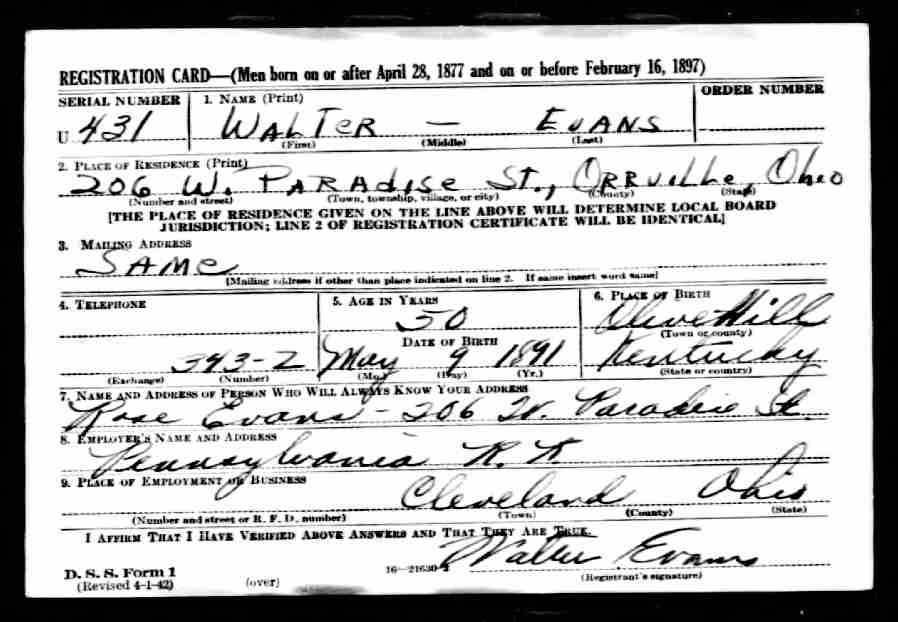 REGISTRATION CARD—(Men born on or after April 28, 1877 and on or before February 16, 1897)
SERIAL NUMBER 1. NAME (Print) ORDER NUMBER
U 431 WALTER — EVANS
(First) (Middle) (Last)
2. PLACE OF RESIDENCE (Print)
206 W. PARADISE ST., ORRVILLE, OHIO
(Number and street) (Town, township, village, or city) (County) (State)
[THE PLACE OF RESIDENCE GIVEN ON THE LINE ABOVE WILL DETERMINE LOCAL BOARD
JURISDICTION; LINE 2 OF REGISTRATION CERTIFICATE WILL BE IDENTICAL]
3. MAILING ADDRESS
SAME
[Mailing address if other than place indicated on line 2. If same insert word same]
4. TELEPHONE 5. AGE IN YEARS 6. PLACE OF BIRTH
50 Olive Hill
DATE OF BIRTH (Town or county)
343-2 May 9 1891 Kentucky
(Exchange) (Number) (Mo.) (Day) (Yr.) (State or country)
7. NAME AND ADDRESS OF PERSON WHO WILL ALWAYS KNOW YOUR ADDRESS
Rose Evans - 206 W. Paradise St.
8. EMPLOYER'S NAME AND ADDRESS
Pennsylvania R. R
9. PLACE OF EMPLOYMENT OR BUSINESS
Cleveland Ohio
(Number and street or R. F. D. number) (Town) (County) (State)
I AFFIRM THAT I HAVE VERIFIED ABOVE ANSWERS AND THAT THEY ARE TRUE.
Walter Evans
D. S. S. Form 1 16—21630-2 (Registrant's signature)
(Revised 4-1-42) (over)